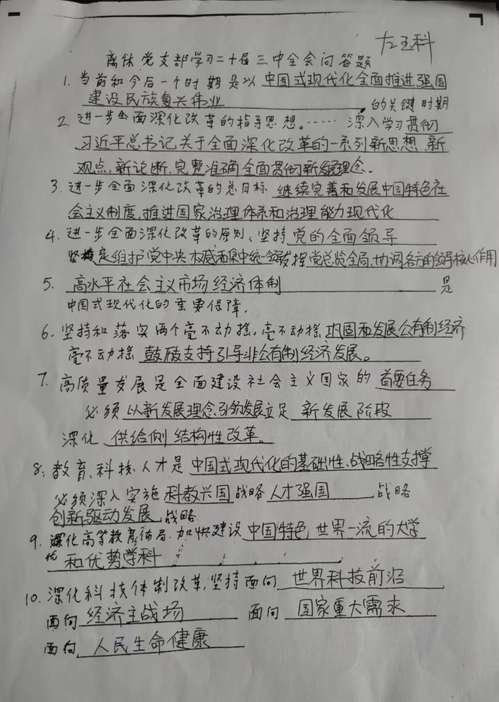 左玉科
离休党支部学习二十届三中全会问答题
1. 当前和今后一个时期是以中国式现代化全面推进强国
建设民族复兴伟业的关键时期
2. 进一步全面深化改革的指导思想。…… 深入学习贯彻
习近平总书记关于全面深化改革的一系列新思想、新
观点、新论断,完整准确全面贯彻新发展理念。
3. 进一步全面深化改革的总目标 继续完善和发展中国特色社
会主义制度,推进国家治理体系和治理能力现代化
4. 进一步全面深化改革的原则、坚持党的全面领导
坚定维护党中央 集中统一领导发挥党总览全局、协调各方的领导核心作用
5. 高水平社会主义市场经济体制 是
中国式现代化的重要保障。
6. 坚持和落实两个毫不动摇,毫不动摇巩固和发展公有制经济
毫不动摇 鼓励支持引导非公有制经济发展。
7. 高质量发展是全面建设社会主义国家的 首要任务
必须以新发展理念引领发展立足 新发展阶段
深化 供给侧结构性改革。
8. 教育、科技、人才是中国式现代化的基础性、战略性支撑
必须深入实施科教兴国战略 人才强国 战略
创新驱动发展 战略
9. 深化高等教育 加快建设 中国特色,世界一流的大学
和优势学科
10. 深化科技体制改革,坚持面向 世界科技前沿
面向 经济主战场 面向 国家重大需求
面向 人民生命健康